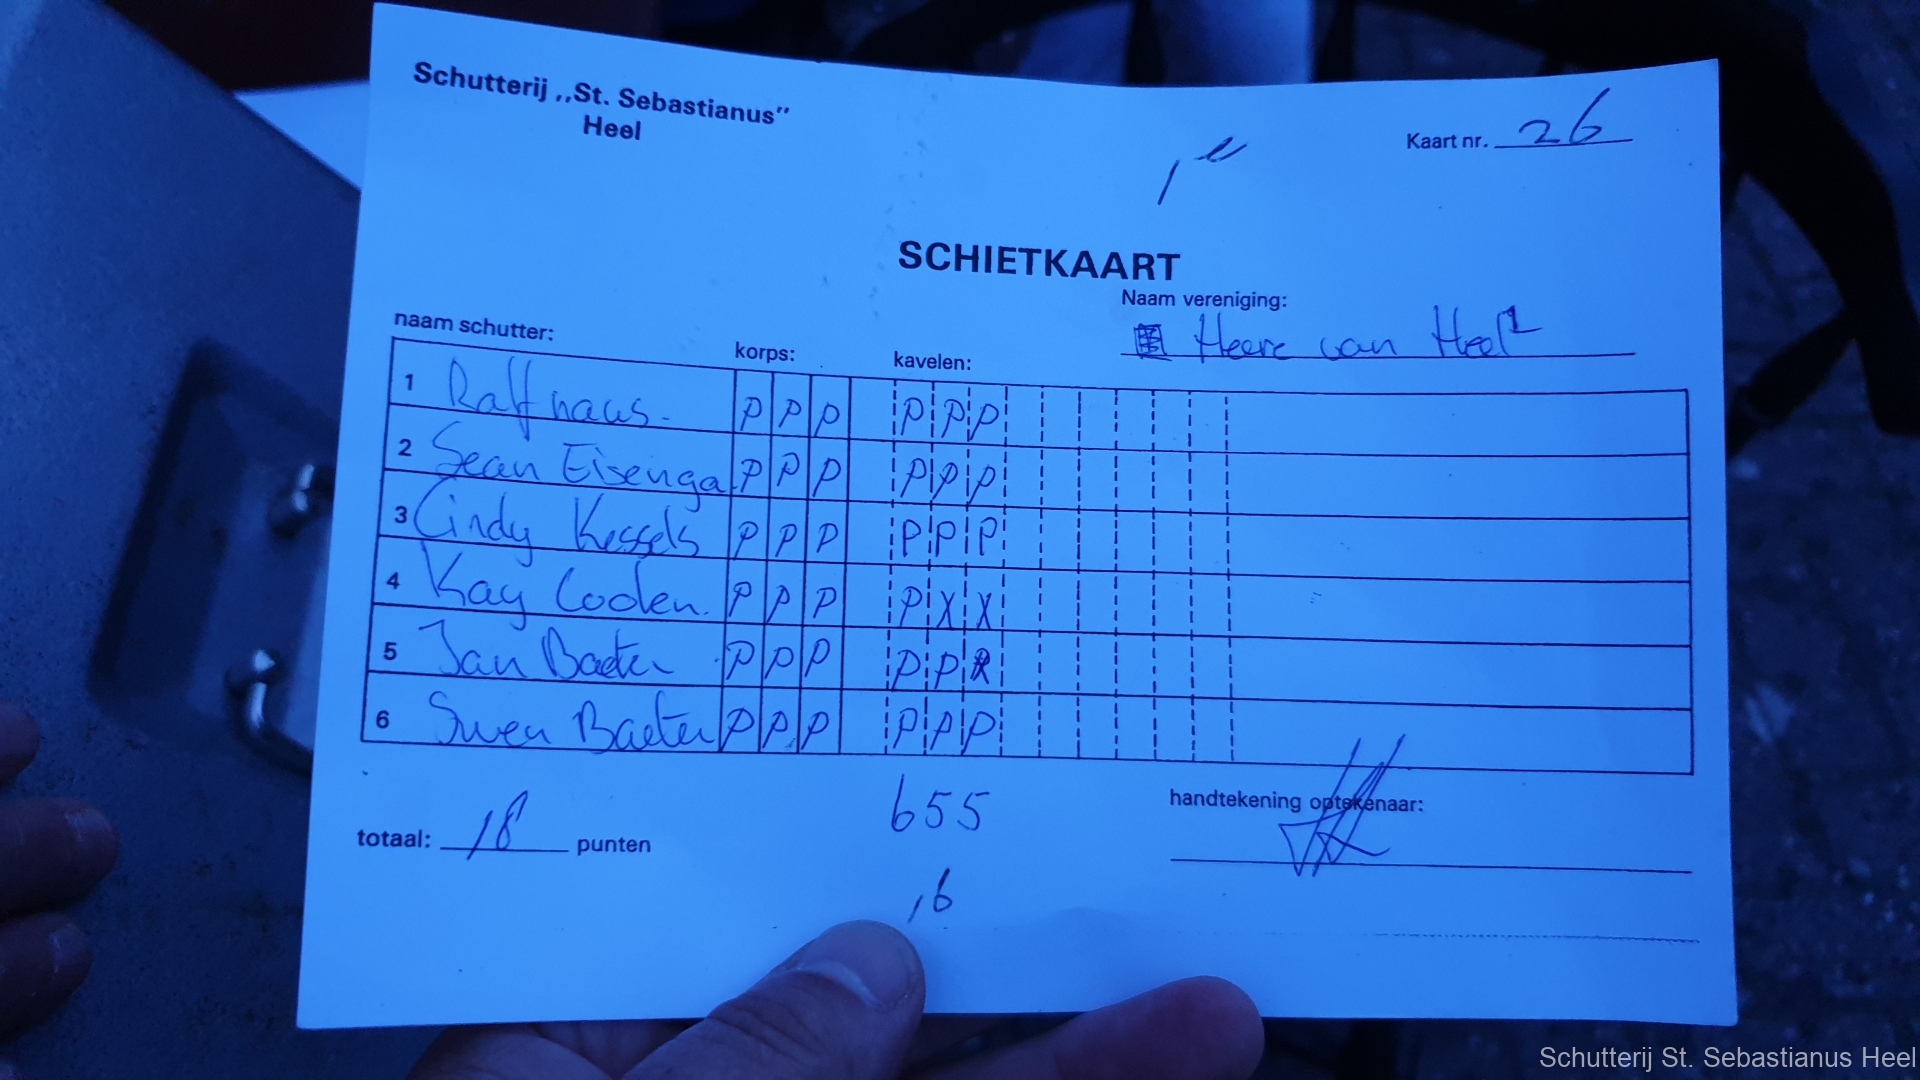 Schutterij ,,St. Sebastianus"
Heel
Kaart nr. 26
1e
SCHIETKAART
Naam vereniging:
Heere van Heel 1
naam schutter:
korps:
kavelen:
1 Ralf haus. P P P P P P
2 Sean Eisenga P P P P P P
3 Cindy Kessels P P P P P P
4 Kay Coolen. P P P P X X
5 Jan Baeten P P P P P
6 Swen Baeten P P P P P P
655
totaal: 18 punten
handtekening optekenaar:
16
Schutterij St. Sebastianus Heel